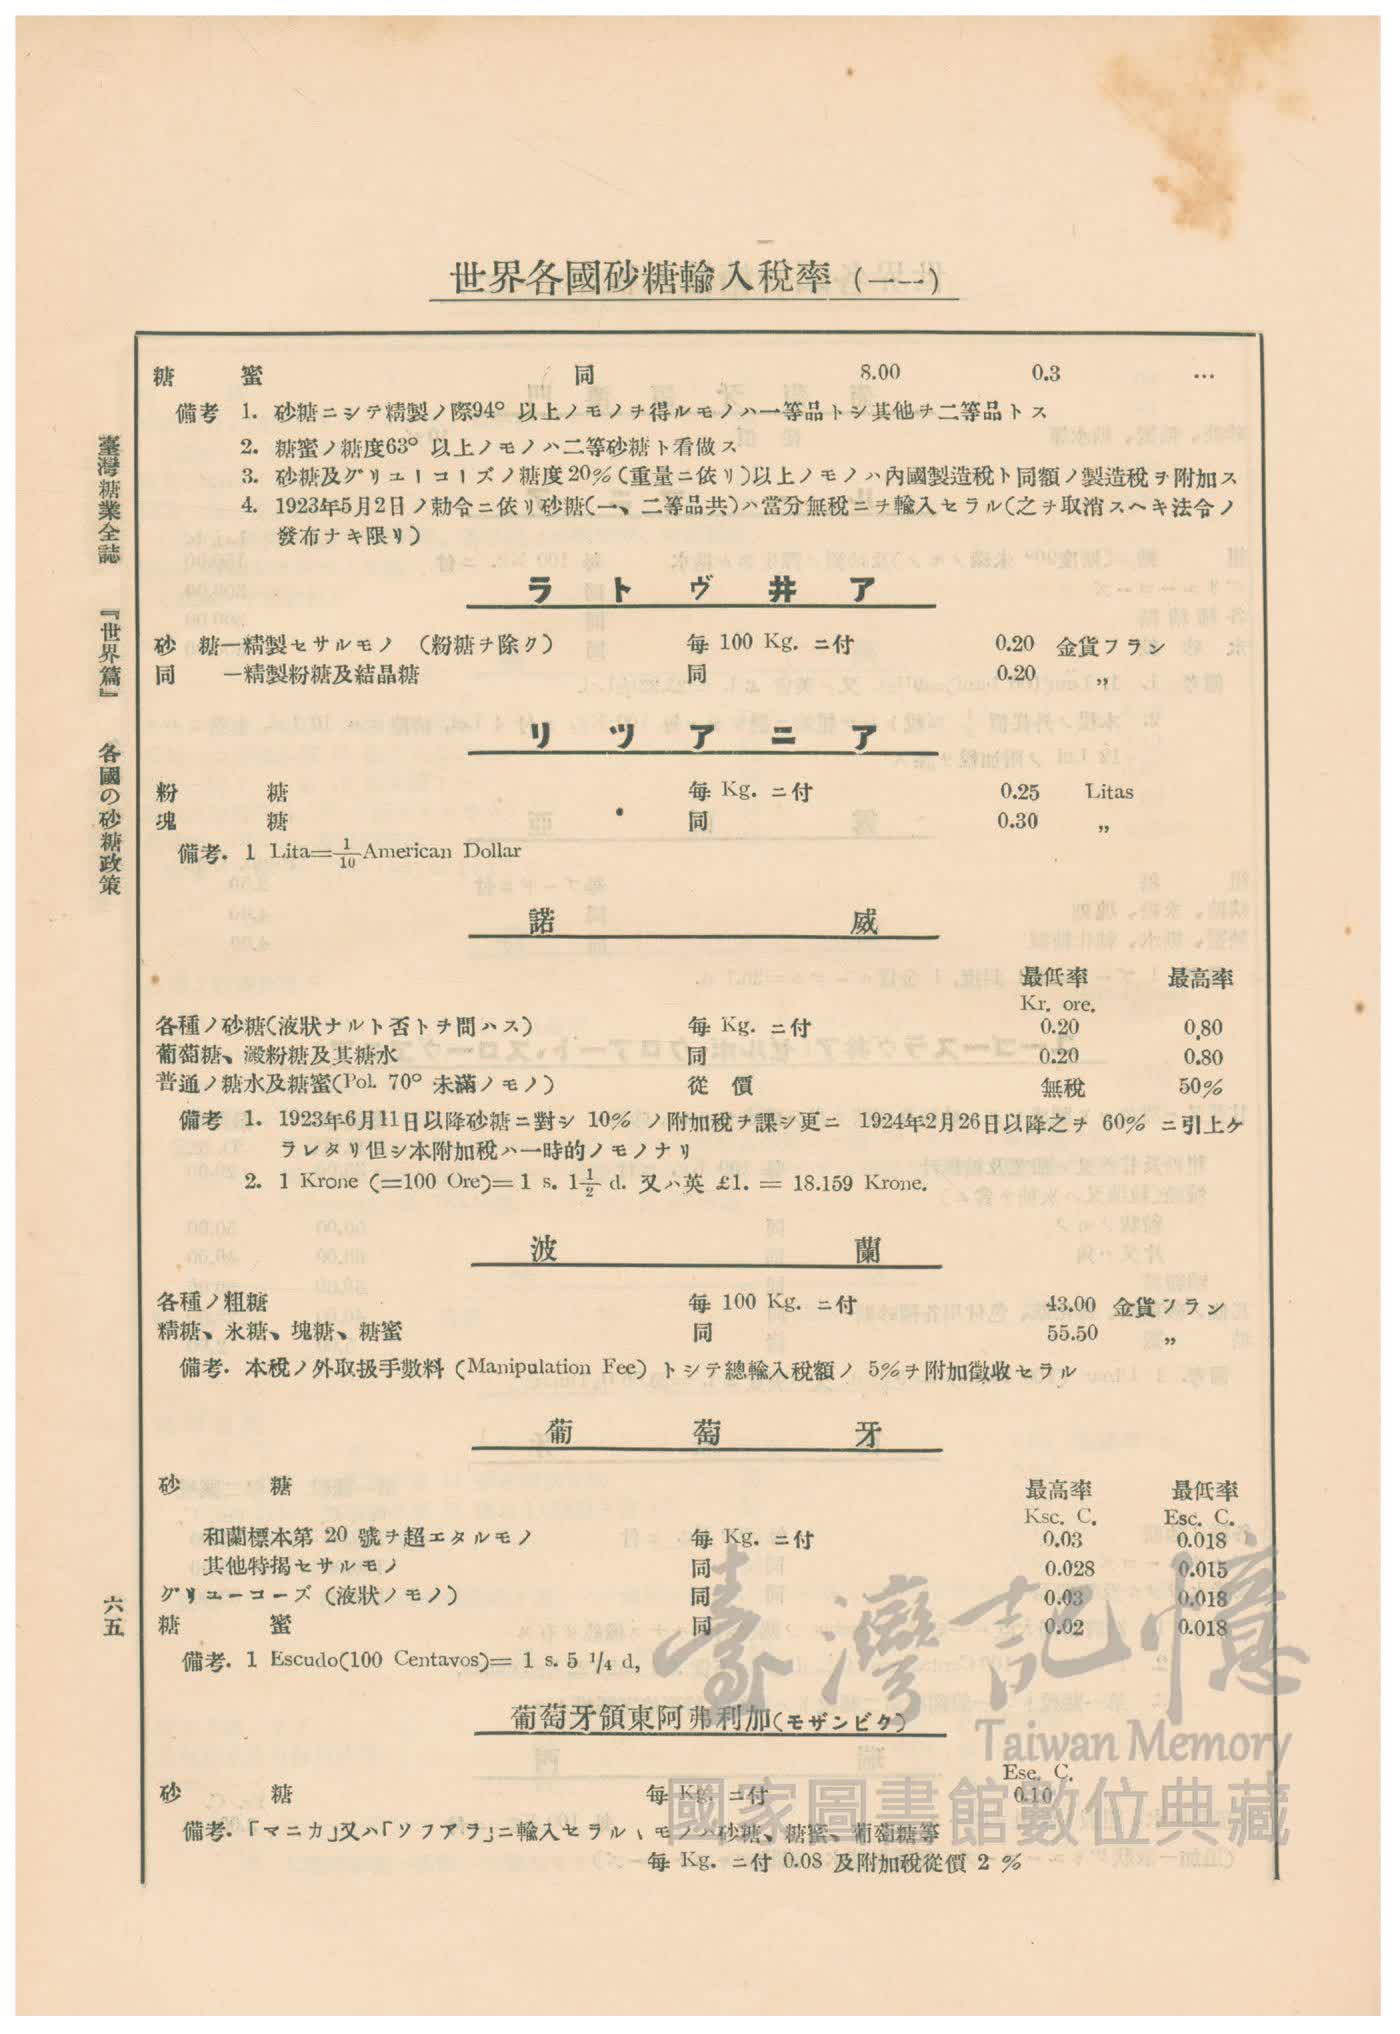 世界各國砂糖輸入税率(一一)
糖 蜜 同 8.00 0.3 …
備考 1. 砂糖ニシテ精製ノ際94° 以上ノモノヲ得ルモノハ一等品トシ其他ヲ二等品トス
2. 糖蜜ノ糖度63° 以上ノモノハ二等砂糖ト看做ス
3. 砂糖及グリューコーズノ糖度20%(重量ニ依リ)以上ノモノハ內國製造税ト同額ノ製造税ヲ附加ス
4. 1923年5月2日ノ勅令ニ依リ砂糖(一、二等品共)ハ當分無税ニテ輸入セラル(之ヲ取消スヘキ法令ノ
發布ナキ限リ)
ラトヴ井ア
砂 糖—精製セサルモノ (粉糖ヲ除ク) 每 100 Kg. ニ付 0.20 金貨フラン
同 —精製粉糖及結晶糖 同 0.20 „
リツアニア
粉 糖 每 Kg. ニ付 0.25 Litas
塊 糖 同 0.30 „
備考. 1 Lita=1/10 American Dollar
諾 威
最低率 最高率
Kr. ore.
各種ノ砂糖(液狀ナルト否トヲ問ハス) 每 Kg. ニ付 0.20 0,80
葡萄糖、澱粉糖及其糖水 同 0.20 0.80
普通ノ糖水及糖蜜(Pol. 70° 未滿ノモノ) 從 價 無税 50%
備考 1. 1923年6月11日以降砂糖ニ對シ 10% ノ附加税ヲ課シ更ニ 1924年2月26日以降之ヲ 60% ニ引上ケ
ラレタリ但シ本附加税ハ一時的ノモノナリ
2. 1 Krone (=100 Ore)= 1 s. 1 1/2 d. 又ハ英 £1. = 18.159 Krone.
波 蘭
各種ノ粗糖 每 100 Kg. ニ付 43.00 金貨フラン
精糖、氷糖、塊糖、糖蜜 同 55.50 „
備考. 本税ノ外取扱手數料 (Manipulation Fee) トシテ總輸入税額ノ 5%ヲ附加徵收セラル
葡 萄 牙
砂 糖 最高率 最低率
Ksc. C. Esc. C.
和蘭標本第 20 號ヲ超エタルモノ 每 Kg. ニ付 0.03 0.018
其他特揭セサルモノ 同 0.028 0.015
グリューコーズ (液狀ノモノ) 同 0.03 0.018
糖 蜜 同 0.02 0.018
備考. 1 Escudo(100 Centavos)= 1 s. 5 1/4 d,
葡萄牙領東阿弗利加(モザンビク)
Ese. C.
砂 糖 每 Kg. ニ付 0.10
備考.「マニカ」又ハ「ソフアラ」ニ輸入セラルヽモノハ砂糖、糖蜜、葡萄糖等
每 Kg. ニ付 0.08 及附加税從價 2 %
臺灣糖業全誌 『世界篇』 各國の砂糖政策
六五
臺灣記憶
Taiwan Memory
國家圖書館數位典藏